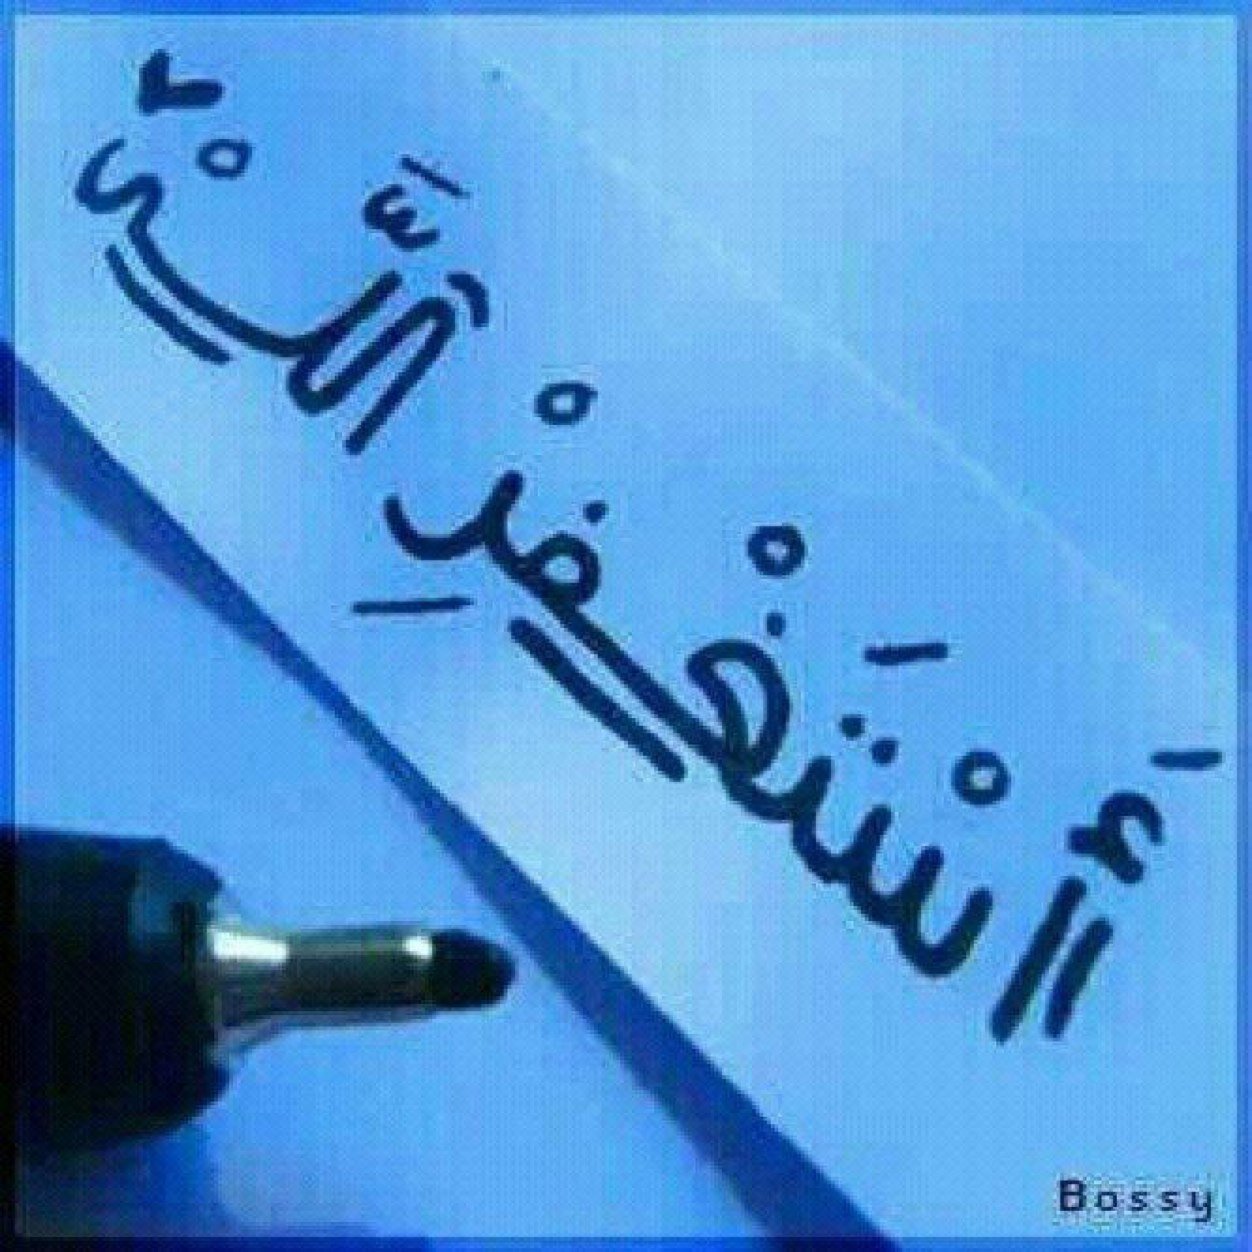 أَسْتَغْفِرْ اللّه
Bossy